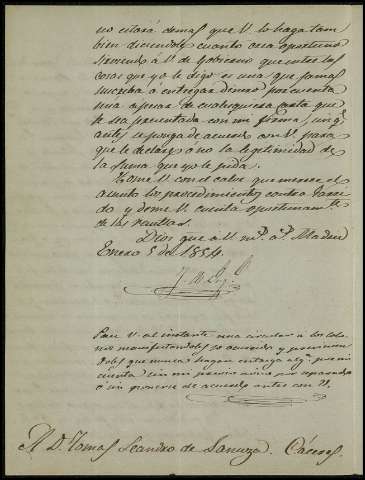 no estará demas que V. lo haga tam
bien diciendole cuanto crea oportuno
sirviendo á V. de gobierno que entre las
cosas que yo le digo es una que jamas
suscriba á entregar dinero por cuenta
mia apesar de cualesquiera carta que
le sea presentada con mi firma, sin q.
antes se ponga de acuerdo con V. para
que le declare ó no la legitimidad de
la firma que yo le pida.
Tome V. con el calor que merece el
asunto los procedimientos contra
do y deme V. cuenta oportunam.te
de las resultas.
Dios gue á V. m.s a.s Madrid
Enero 5 de 1854.
Pase V. al instante una circular a los colo
nos manifestandoles lo ocurrido y previnien
doles que nunca hagan entrega alg.a por mi
cuenta sin mi previo aviso por separado
ó sin ponerse de acuerdo antes con V.
A D. Tomas Leandro de Sanuza. Cáceres.